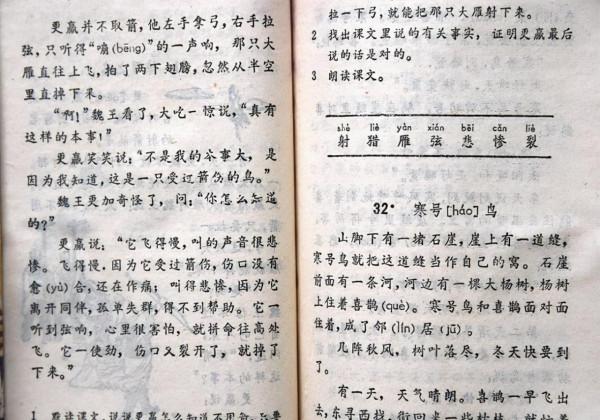 更羸并不取箭，他左手拿弓，右手拉
弦，只听得“嘣(bēng)”的一声响，那只大
雁直往上飞，拍了两下翅膀，忽然从半空
里直掉下来。
“啊!”魏王看了，大吃一惊说，“真有
这样的本事!”
更羸笑笑说：“不是我的本事大，是
因为我知道，这是一只受过箭伤的鸟。”
魏王更加奇怪了，问：“你怎么知道
的?”
更羸说：“它飞得慢，叫的声音很悲
惨。飞得慢，因为它受过箭伤，伤口没有
愈(yù)合，还在作痛；叫得悲惨，因为它
离开同伴，孤单失群，得不到帮助。它一
听到弦响，心里很害怕，就拼命往高处
飞。它一使劲，伤口又裂开了，就掉了
下来。”
1 朗读课文。说说更羸怎么知道不用箭，只要
拉一下弓，就能把那只大雁射下来。
2 找出课文里说的有关事实，证明更羸最后
说的话是对的。
3 朗读课文。
shè liè yàn xián bēi cǎn liè
射 猎 雁 弦 悲 惨 裂
32* 寒号[háo]鸟
山脚下有一堵石崖，崖上有一道缝，
寒号鸟就把这道缝当作自己的窝。石崖
前面有一条河，河边有一棵大杨树，杨树
上住着喜鹊(què)。寒号鸟和喜鹊面对面
住着，成了邻(lín)居(jū)。
几阵秋风，树叶落尽，冬天快要到
了。
有一天，天气晴朗。喜鹊一早飞出
去，东寻西找，衔回来一些树枝，就忙